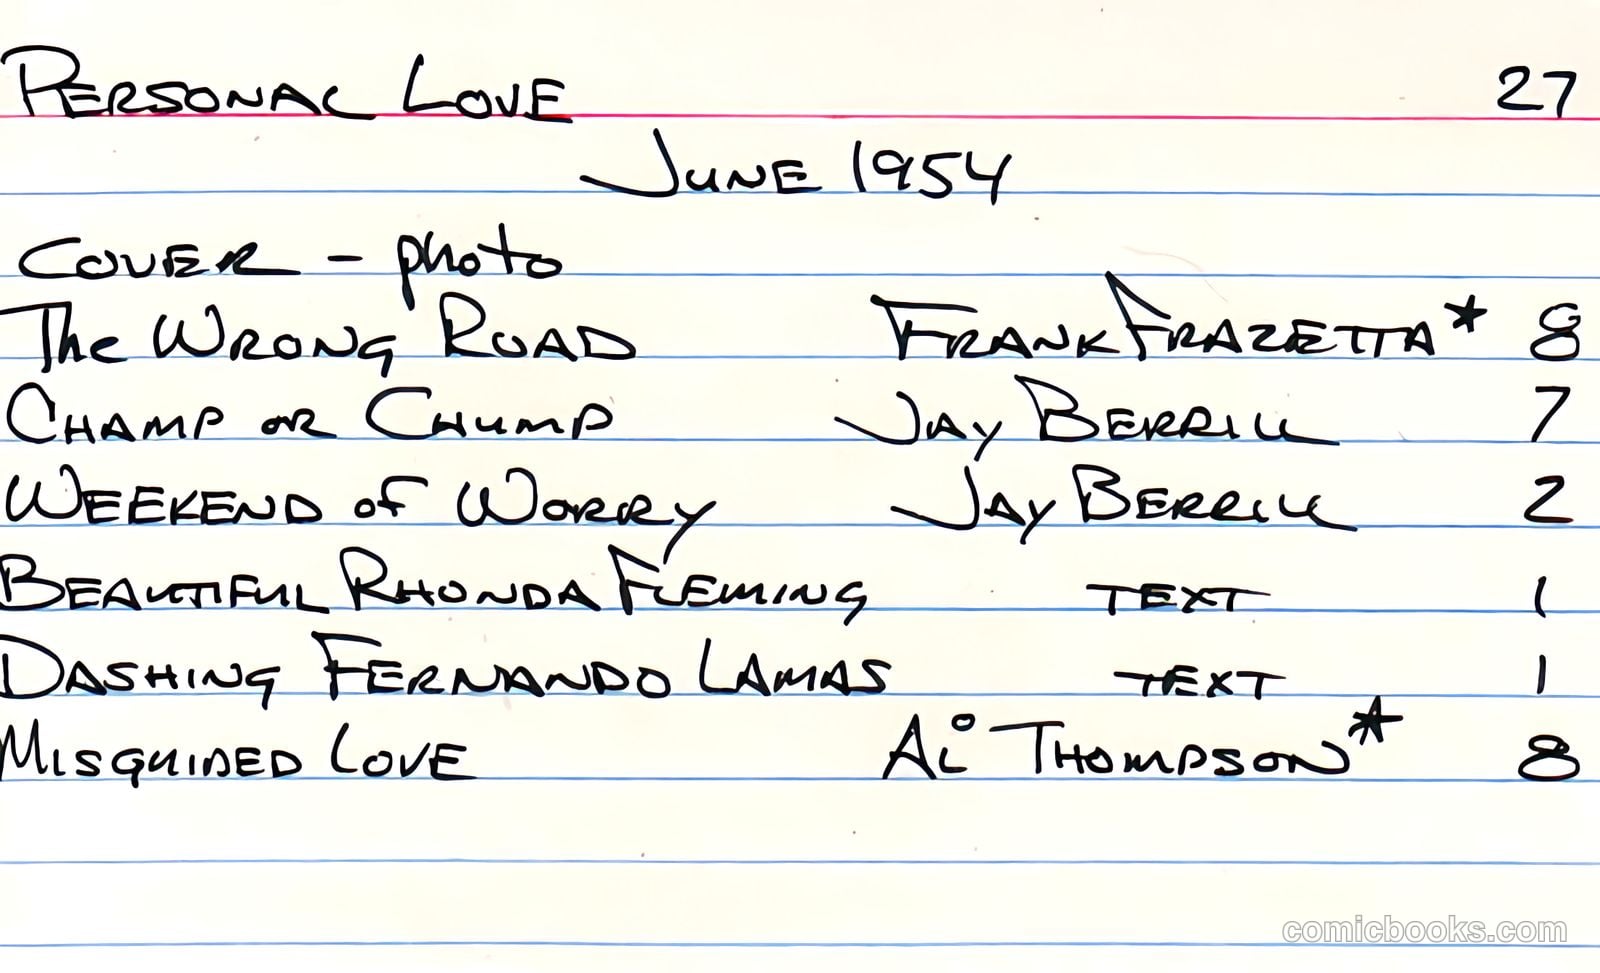 PERSONAL LOVE 27
JUNE 1954
COVER - photo
The WRONG ROAD FRANK FRAZETTA* 8
CHAMP OR CHUMP JAY BERRILL 7
WEEKEND OF WORRY JAY BERRILL 2
BEAUTIFUL RHONDA FLEMING TEXT 1
DASHING FERNANDO LAMAS TEXT 1
MISGUIDED LOVE Al THOMPSON* 8
comicbooks.com